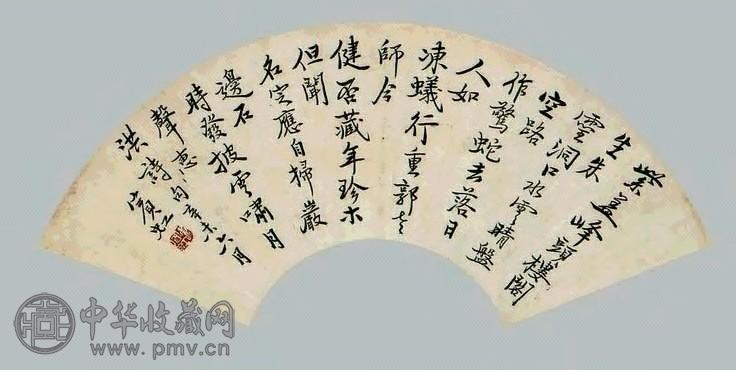 紫蓋峰頭樓閣
生朱
雲洞口水帘晴盤
空路
作驚蛇去落日
人如
凍蟻行重郭老
師今
健否藏年珍木
但聞
名定應自掃巖
邊石
時發披雲嘯月
聲惠
洪詩句辛未六月
賓虹
中华收藏网
www.pmv.cn